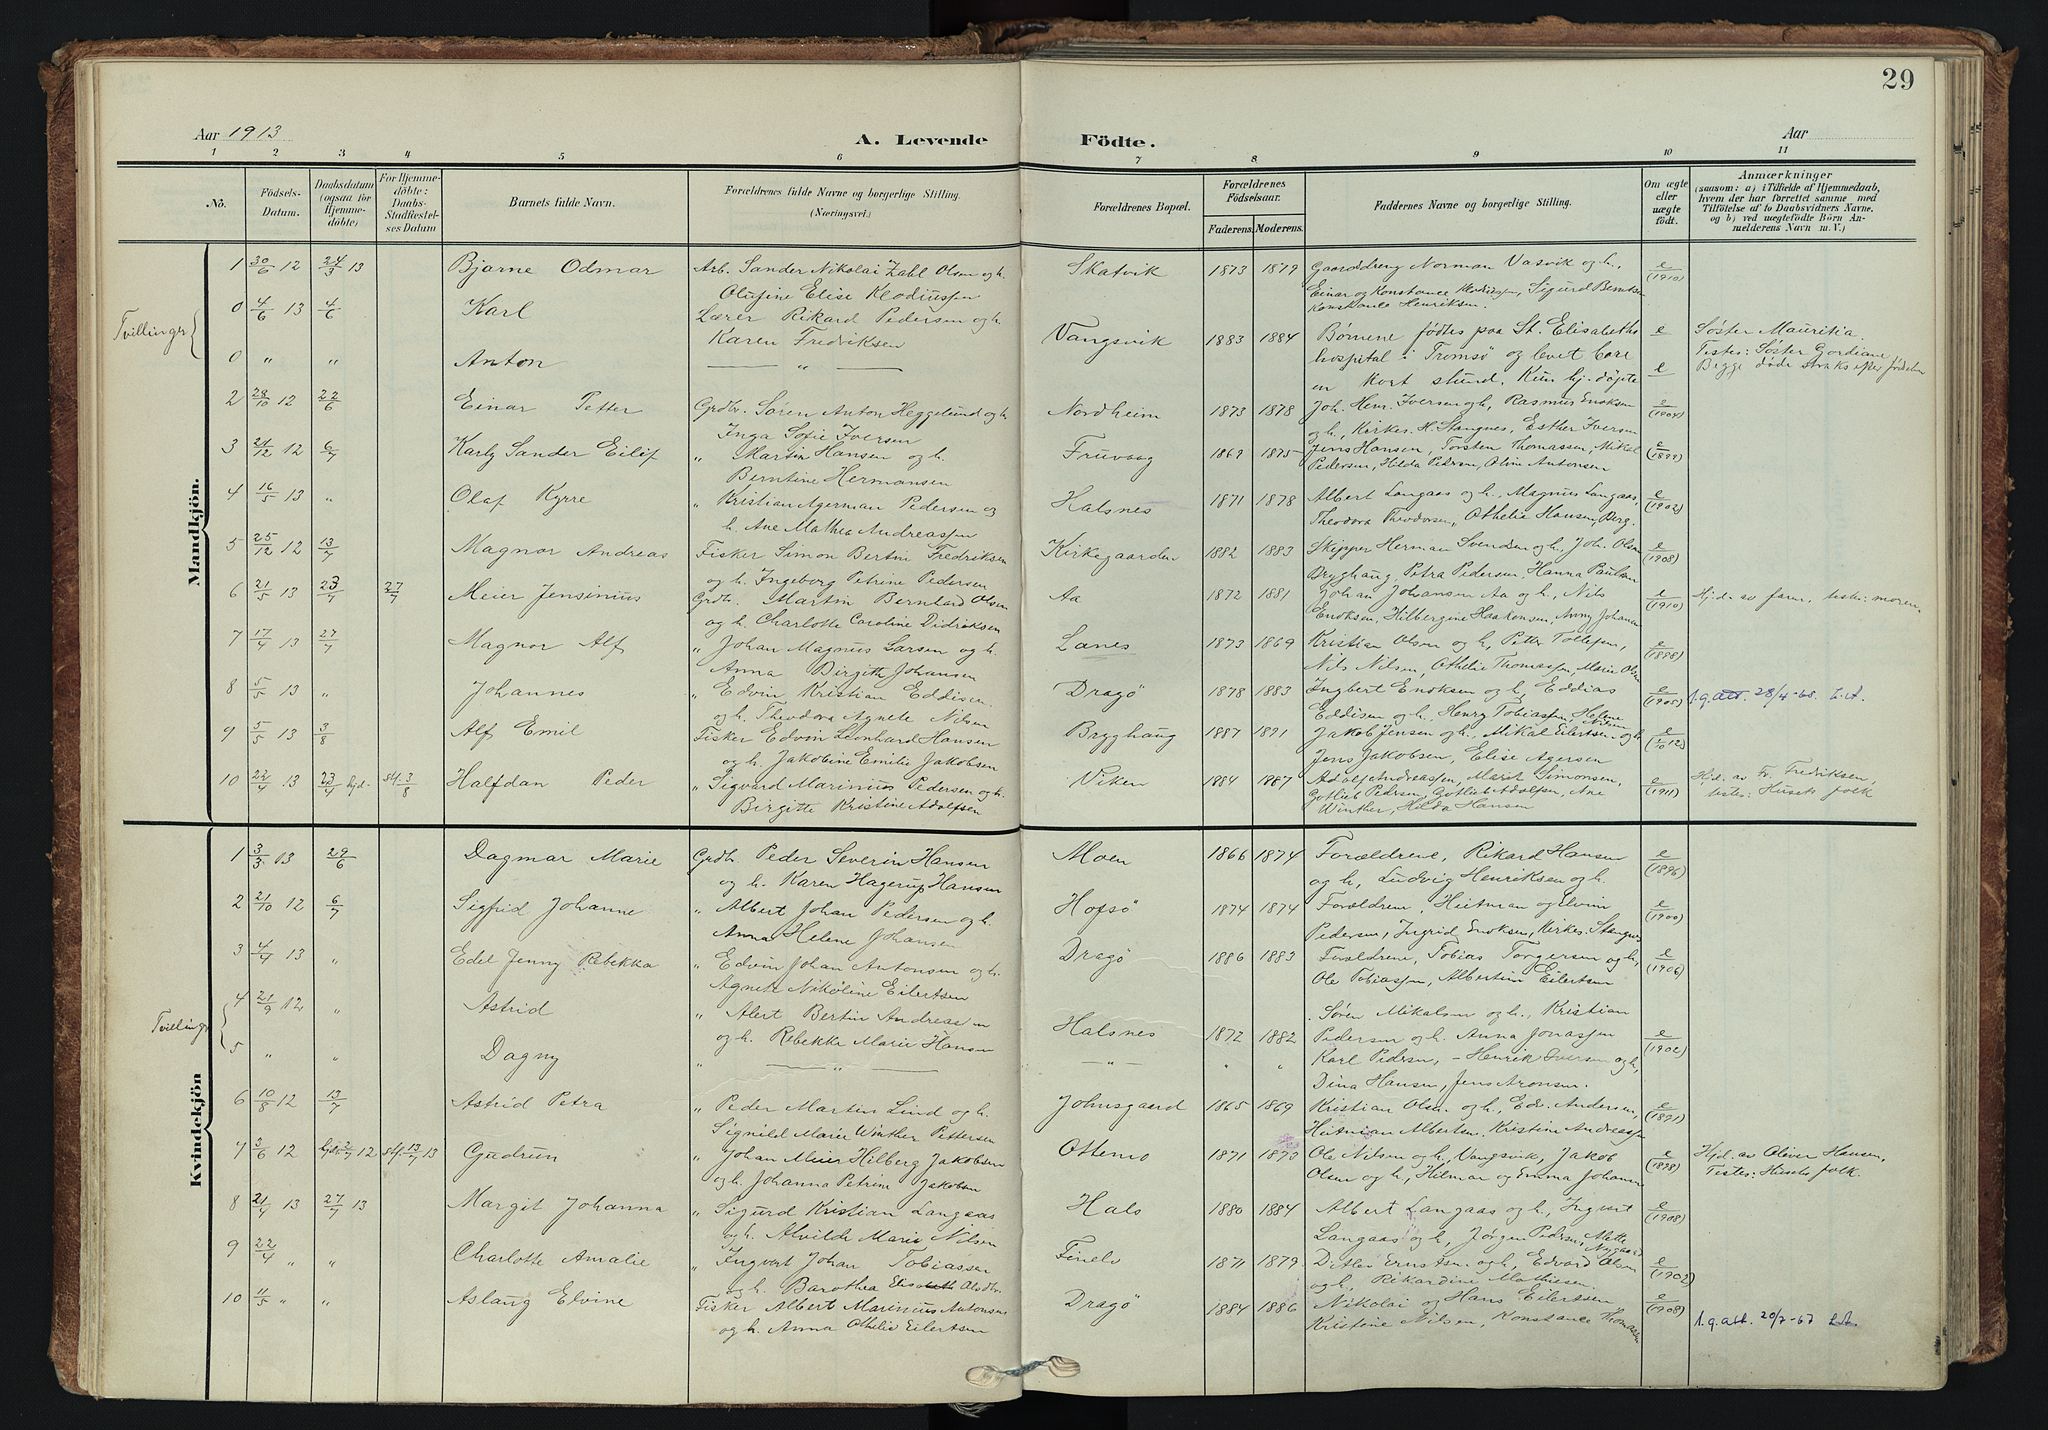 29
Aar 1913
A. Levende Födte.
Aar
1 2 3 4 5 6 7 8 9 10 11
Nö.
Födsels-Datum.
Daabsdatum (ogsaa for Hjemme-döbte)
For Hjemme-döbte: Daabs-Stadfæstel-ses Datum
Barnets fulde Navn.
Forældrenes fulde Navne og borgerlige Stilling. (Næringsvei.)
Forældrenes Bopæl.
Forældrenes Födselsaar.
Faderens. Moderens.
Faddernes Navne og borgerlige Stilling.
Om ægte eller uægte födt.
Anmærkninger
(saasom: a) i Tilfælde af Hjemmedaab, hvem der har forrettet samme med Tilföielse af to Daabsvidners Navne. og b) ved uægtefödte Börn An-melderens Navn m. V.)
Mandkjön.
1 30/6 12 24/3 13 Bjarne Odmar Arb. Sander Nikolai Zahl Olsen og h. Olufine Elise Klodiussen Skatvik 1873 1879 Gaarddreng Norman Vasvik og h., Einar og Konstance Klodiussen, Sigurd Berntsen Konstance Henriksen. e (1910)
Tvillinger
0 4/6 13 4/6 Karl Lærer Rikard Pedersen og h. Karen Fredriksen Vangsvik 1883 1884 Børnene fødtes paa St. Elisabeths hospital i Tromsø og levet bare en kort stund. Kun hj. døpte e Søster Mauritia. Testes: Søster Gordiane Begge døde straks efter fødselen
0 " " Anton — " — e
2 28/10 12 22/6 Einar Petter Grdbr. Søren Anton Heggelund og h. Inga Sofie Iversen Nordheim 1873 1878 Joh. Henr. Iversen og h., Rasmus Enoksen og h., Kirkes. H. Stangnes, Esther Iversen e (1904)
3 21/12 12 6/7 Karly Sander Eilif " Martin Hansen og h. Berntine Hermansen Fruvaag 1869 1875 Jens Hansen, Torsten Thomassen, Mikal Pedersen, Hilda Pedersen, Oline Antonsen e (1899)
4 16/5 13 " Olaf Kyrre " Kristian Agerman Pedersen og h. Ane Mathea Andreassen Halsnes 1871 1878 Albert Langaas og h., Magnus Langaas, Theodora Theodorsen, Othelie Hansen, Berg. e (1902)
5 25/12 12 13/7 Magnor Andreas Fisker Simon Bertin Fredriksen og h. Ingeborg Petrine Pedersen Kirkegaarden 1882 1883 Skipper Herman Svendsen og h., Joh. Olsen Bryghaug, Petra Pedersen, Hanna Paulsen e (1908)
6 21/5 13 23/7 27/7 Meier Jensinius Grdbr. Martin Bernhard Olsen og h. Charlotte Caroline Didriksen Aa 1872 1881 Johan Johansen Aa og h., Nils Enoksen, Hilbergine Haakonsen, Anny Johansen e (1910) Hj.d. av faren, teste: moren
7 17/4 13 27/7 Magnor Alf " Johan Magnus Larsen og h. Anna Birgithe Johansen Lanes 1873 1869 Kristian Olsen og h., Petter Tollefsen, Nils Nilsen, Othelie Thomassen, Marie Olsen e (1898)
8 5/5 13 " Johannes " Edvin Kristian Eddisen og h. Theodora Agnete Nilsen Dragö 1878 1883 Ingbert Enoksen og h., Eddias Eddisen og h., Henry Tobiassen, Helene Nilsen e (1905) 1. g. att. 28/4-68.
9 5/5 13 3/8 Alf Emil Fisker Edvin Leonhard Hansen og h. Jakobine Emilie Jakobsen Bryghaug 1887 1891 Jakob Jensen og h., Mikal Eilertsen og h. Jens Jakobsen, Elise Agersen e (1/10 12)
10 22/4 13 23/4 hjd. stf. 3/8 Halfdan Peder " Sigvard Marinius Pedersen og h. Birgitte Kristine Adolfsen Viken 1884 1887 Adolf Andreassen, Marit Simonsen, Gotlieb Pedersen, Gotlieb Adolfsen, Ane Winther, Hilda Hansen e (1911) Hjd. av Fr. Fredriksen, testes: Husets folk
Kvindekjön
1 3/3 13 29/6 Dagmar Marie Grdbr. Peder Severin Hansen og h. Karen Hagerup Hansen Moen 1866 1874 Forældrene, Rikard Hansen og h., Ludvig Henriksen og h. e (1896)
2 21/10 12 6/7 Sigfrid Johanne " Albert Johan Pedersen og h. Anna Helene Johansen Hofsö 1874 1874 Forældrene, Heitman og Elvine Pedersen, Ingrid Enoksen, Kirkes. Stangnes e (1900)
3 4/4 13 " Edel Jenny Rebekka " Edvin Johan Antonsen og h. Agnete Nikoline Eilertsen Dragö 1886 1883 Forældrene, Tobias Torgersen og h., Ole Tobiassen, Albertine Eilertsen e (1906)
Tvillinger
4 21/9 12 " Astrid " Alert Bertin Andreasen og h. Rebekke Marie Hansen Halsnes 1872 1882 Søren Mikalsen og h., Kristian Pedersen og h. Anna Jonassen e (1902)
5 " " Dagny " — " — — " — " " Karl Pedersen, – Henrik Iversen og h., Dina Hansen, Jens Aronsen.
6 10/8 12 13/7 Astrid Petra " Peder Martin Lind og h. Signild Marie Winther Pettersen Johnsgaard 1865 1869 Kristian Olsen og h., Edv. Andersen, Heitman Albertsen, Kristine Andreassen e (1891)
7 3/6 12 hjd. 2/7 12 stf. 13/7 13 Gudrun " Johan Meier Hilberg Jakobsen og h. Johanna Petrine Jakobsen Ottemo 1871 1873 Ole Nilsen og h., Vangsvik, Jakob Olsen og h., Hilmar og Emma Johansen e (1898) Hjd. av Oliver Hansen, Testes: Husets folk.
8 21/4 13 27/7 13 Margit Johanna " Sigurd Kristian Langaas og h. Alvilde Marie Nilsen Hals 1880 1884 Albert Langaas og h., Ingvart Langaas og h., Jørgen Pedersen, Mette Nygaard e (1908)
9 22/4 " " Charlotte Amalie " Ingvart Johan Tobiassen og h. Barothea Elisabeth Olsdtr. Finelv 1871 1879 Ditlev Ernstsen og h., Edvard Olsen og h., Rikardine Mathisen e (1902)
10 11/5 " " Aslaug Elvine Fisker Albert Marinius Antonsen og h. Anna Othelie Eilertsen Dragö 1884 1886 Nikolai og Hans Eilertsen Kristine Nilsen, Konstance Thomassen e (1908) 1. g. att. 20/7-67